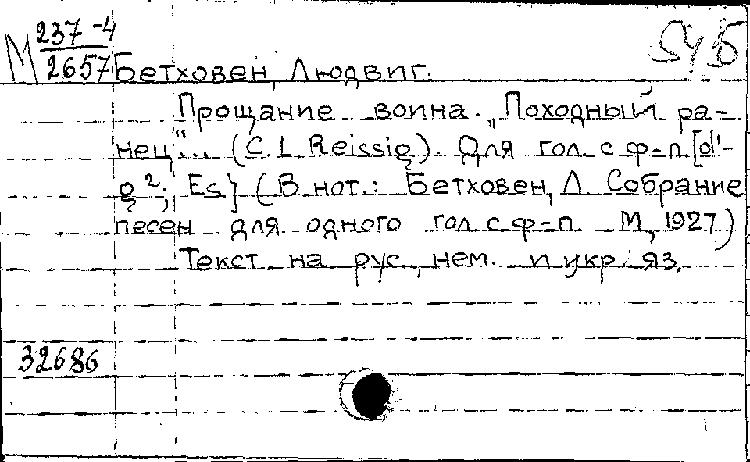 М 237-4
2657 Бетховен, Людвиг.
Прощание воина. „Походный ра-
нец"... (C. L. Reissig). Для гол. с ф-п. [d'-
g²; Es] (В нот.: Бетховен, Л. Собрание
песен для одного гол. с ф-п. М., 1927)
Текст на рус., нем. и укр. яз.
32686